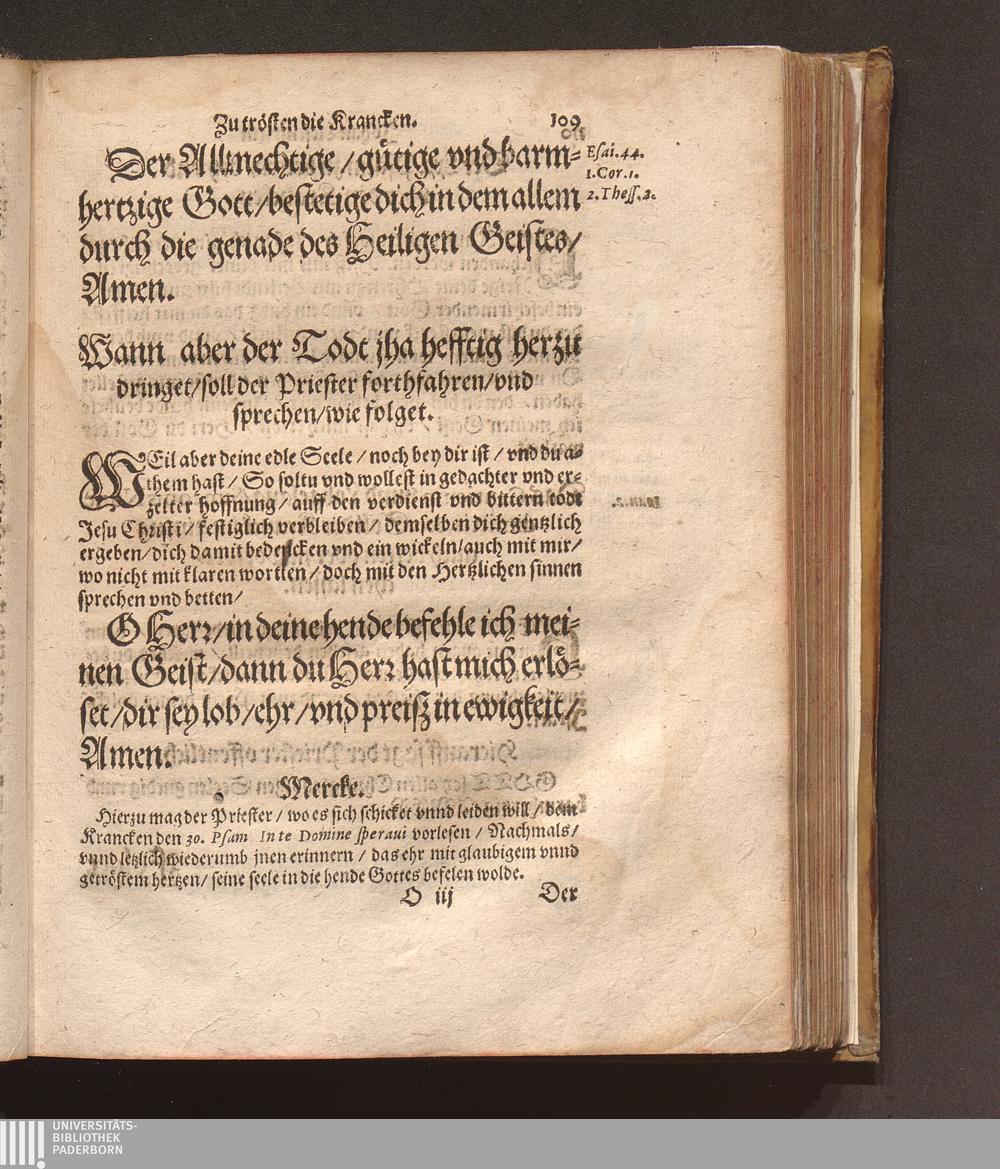 Zu trösten die Krancken. 109
Der Allmechtige / gütige vnd barm-
Esai. 44.
1. Cor. 1.
hertzige Gott / bestetige dich in dem allem
2. Thess. 2.
durch die genade des Heiligen Geistes /
Amen.
Wann aber der Todt jha hefftig herzu
dringet / soll der Priester forthfahren / vnd
sprechen / wie folget.
WEil aber deine edle Seele / noch bey dir ist / vnd du a-
them hast / So soltu vnd wollest in gedachter vnd er-
zelter hoffnung / auff den verdienst vnd bittern todt
Jesu Christi / festiglich verbleiben / demselben dich gentzlich
ergeben / dich damit bedecken vnd ein wickeln / auch mit mir /
wo nicht mit klaren wortten / doch mit den Hertzlichen sinnen
sprechen vnd betten /
O Herr / in deine hende befehle ich mei-
nen Geist / dann du Herr hast mich erlö-
set / dir sey lob / ehr / vnd preisz in ewigkeit /
Amen.
Mercke.
Hierzu mag der Priester / wo es sich schicket vnnd leiden will / dem
Krancken den 30. Psam In te Domine speraui vorlesen / Nachmals /
vnnd letzlich wiederumb jnen erinnern / das ehr mit glaubigem vnnd
getröstem hertzen / seine seele in die hende Gottes befelen wolde.
O iij Der
UNIVERSITÄTS-
BIBLIOTHEK
PADERBORN